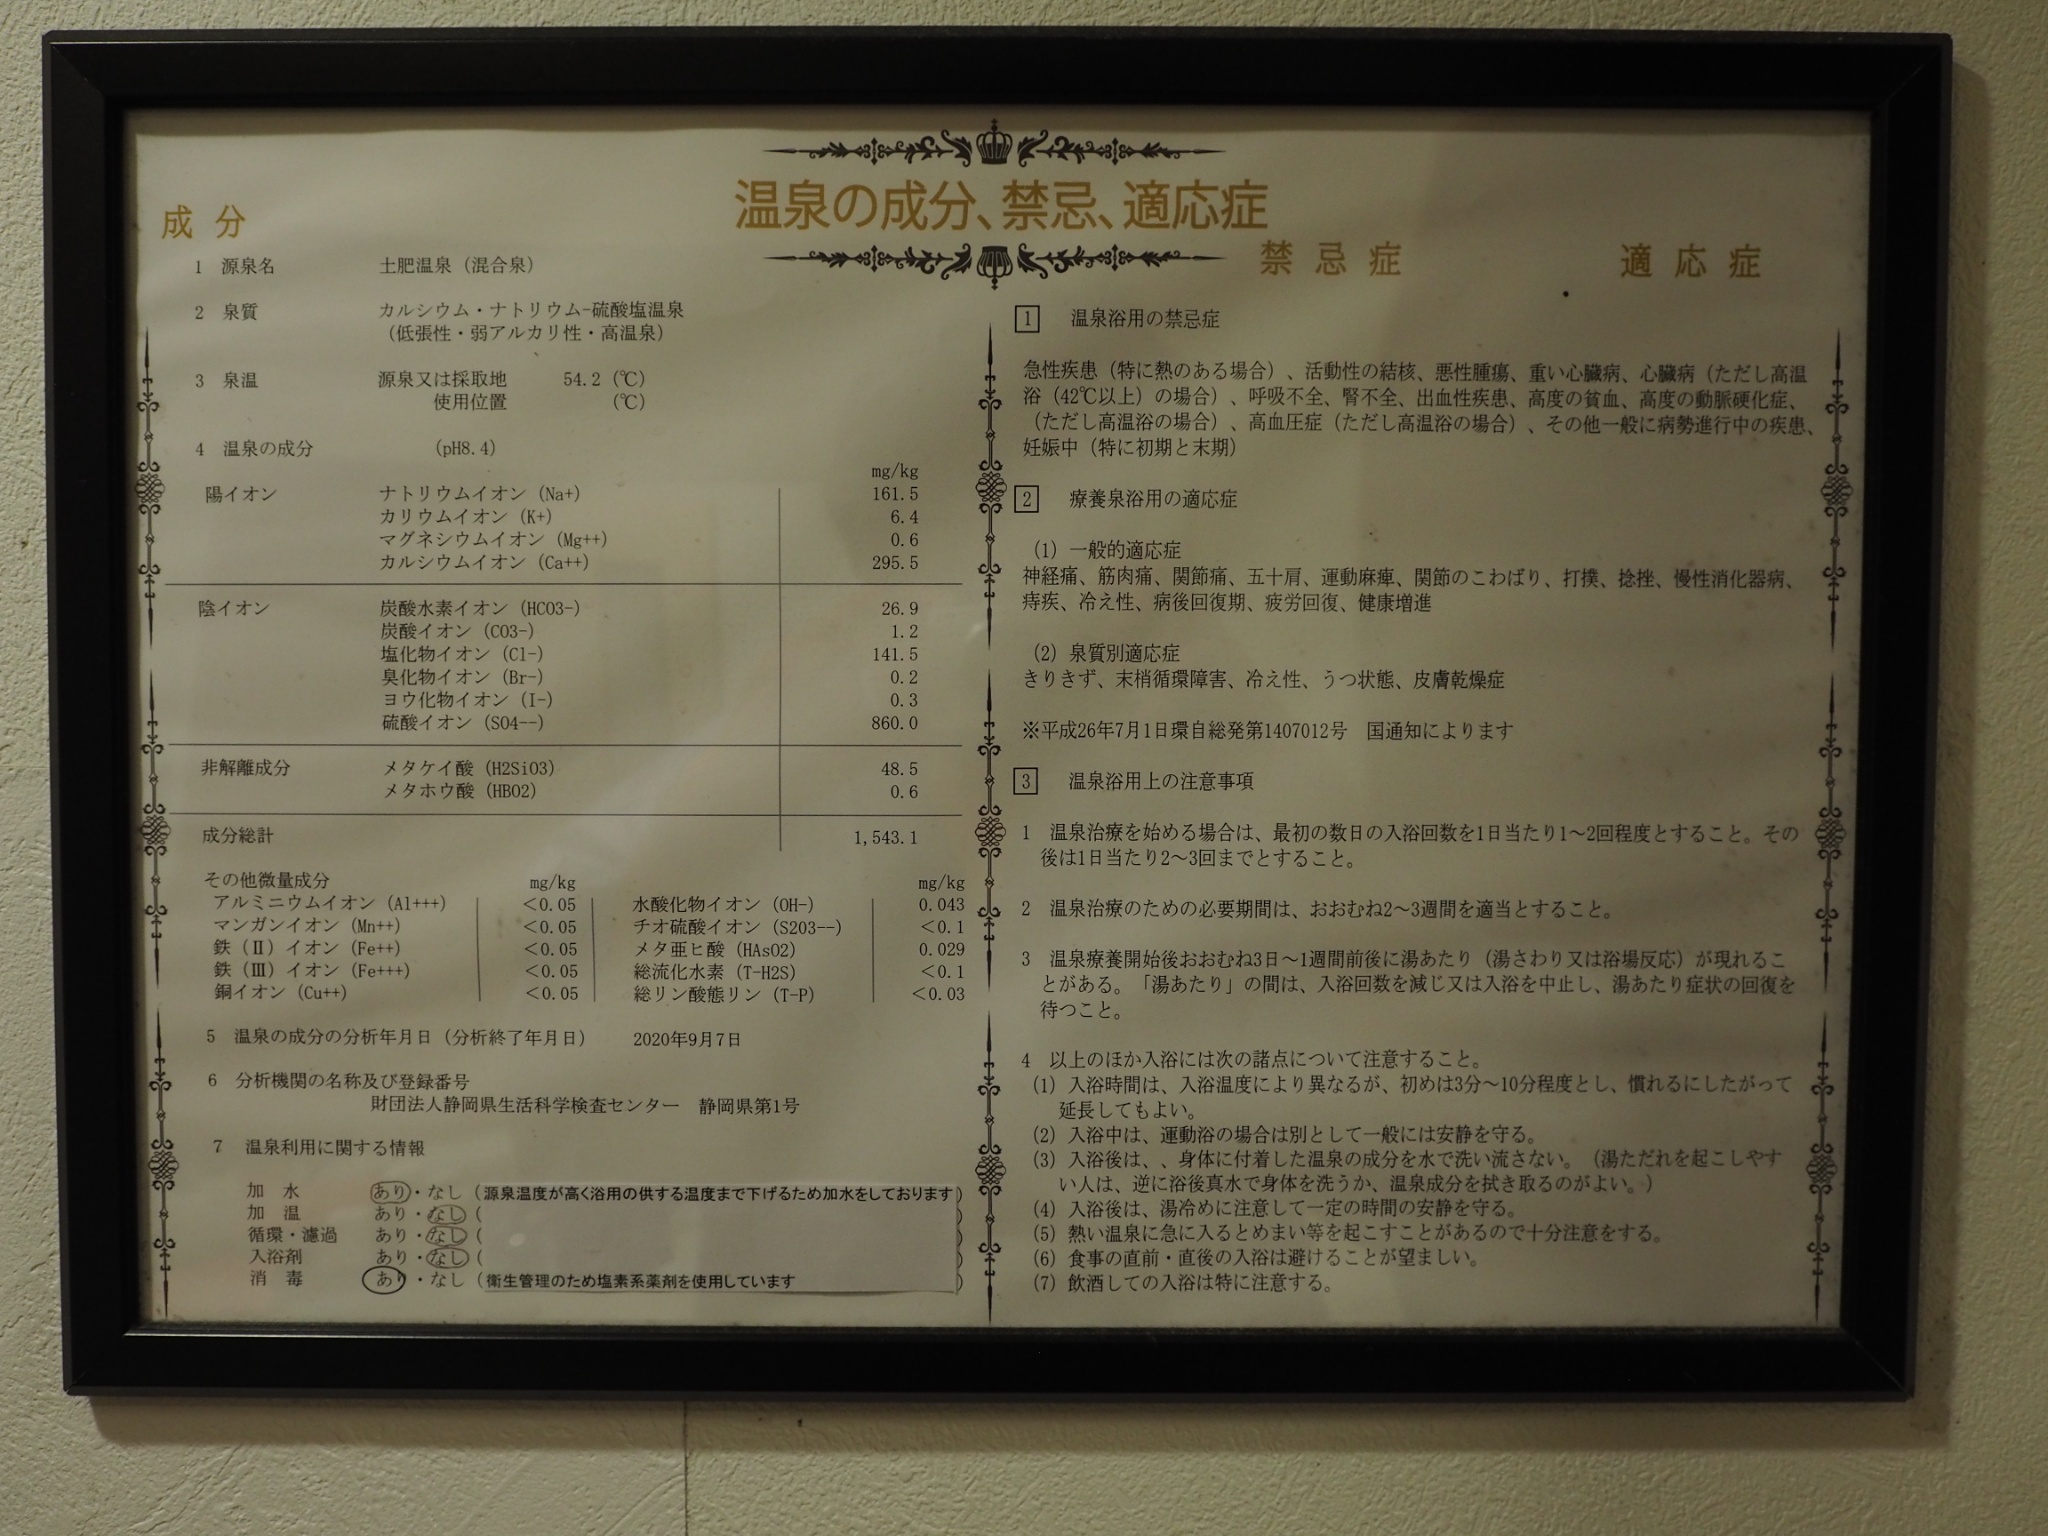 温泉の成分、禁忌、適応症
成分
1 源泉名 土肥温泉（混合泉）
2 泉質 カルシウム・ナトリウム-硫酸塩温泉
（低張性・弱アルカリ性・高温泉）
3 泉温 源泉又は採取地 54.2（℃）
使用位置 （℃）
4 温泉の成分 （pH8.4）
mg/kg
陽イオン ナトリウムイオン（Na+） 161.5
カリウムイオン（K+） 6.4
マグネシウムイオン（Mg++） 0.6
カルシウムイオン（Ca++） 295.5
陰イオン 炭酸水素イオン（HCO3-） 26.9
炭酸イオン（CO3-） 1.2
塩化物イオン（Cl-） 141.5
臭化物イオン（Br-） 0.2
ヨウ化物イオン（I-） 0.3
硫酸イオン（SO4--） 860.0
非解離成分 メタケイ酸（H2SiO3） 48.5
メタホウ酸（HBO2） 0.6
成分総計 1,543.1
その他微量成分 mg/kg mg/kg
アルミニウムイオン（Al+++） ＜0.05 水酸化物イオン（OH-） 0.043
マンガンイオン（Mn++） ＜0.05 チオ硫酸イオン（S2O3--） ＜0.1
鉄（Ⅱ）イオン（Fe++） ＜0.05 メタ亜ヒ酸（HAsO2） 0.029
鉄（Ⅲ）イオン（Fe+++） ＜0.05 総流化水素（T-H2S） ＜0.1
銅イオン（Cu++） ＜0.05 総リン酸態リン（T-P） ＜0.03
5 温泉の成分の分析年月日（分析終了年月日） 2020年9月7日
6 分析機関の名称及び登録番号
財団法人静岡県生活科学検査センター 静岡県第1号
7 温泉利用に関する情報
加 水 あり・なし（源泉温度が高く浴用の供する温度まで下げるため加水をしております）
加 温 あり・なし（ ）
循環・濾過 あり・なし（ ）
入浴剤 あり・なし（ ）
消 毒 あり・なし（衛生管理のため塩素系薬剤を使用しています ）
禁忌症 適応症
1 温泉浴用の禁忌症
急性疾患（特に熱のある場合）、活動性の結核、悪性腫瘍、重い心臓病、心臓病（ただし高温
浴（42℃以上）の場合）、呼吸不全、腎不全、出血性疾患、高度の貧血、高度の動脈硬化症、
（ただし高温浴の場合）、高血圧症（ただし高温浴の場合）、その他一般に病勢進行中の疾患、
妊娠中（特に初期と末期）
2 療養泉浴用の適応症
（1）一般的適応症
神経痛、筋肉痛、関節痛、五十肩、運動麻痺、関節のこわばり、打撲、捻挫、慢性消化器病、
痔疾、冷え性、病後回復期、疲労回復、健康増進
（2）泉質別適応症
きりきず、末梢循環障害、冷え性、うつ状態、皮膚乾燥症
※平成26年7月1日環自総発第1407012号 国通知によります
3 温泉浴用上の注意事項
1 温泉治療を始める場合は、最初の数日の入浴回数を1日当たり1～2回程度とすること。その
後は1日当たり2～3回までとすること。
2 温泉治療のための必要期間は、おおむね2～3週間を適当とすること。
3 温泉療養開始後おおむね3日～1週間前後に湯あたり（湯さわり又は浴場反応）が現れるこ
とがある。「湯あたり」の間は、入浴回数を減じ又は入浴を中止し、湯あたり症状の回復を
待つこと。
4 以上のほか入浴には次の諸点について注意すること。
（1）入浴時間は、入浴温度により異なるが、初めは3分～10分程度とし、慣れるにしたがって
延長してもよい。
（2）入浴中は、運動浴の場合は別として一般には安静を守る。
（3）入浴後は、、身体に付着した温泉の成分を水で洗い流さない。（湯ただれを起こしやす
い人は、逆に浴後真水で身体を洗うか、温泉成分を拭き取るのがよい。）
（4）入浴後は、湯冷めに注意して一定の時間の安静を守る。
（5）熱い温泉に急に入るとめまい等を起こすことがあるので十分注意をする。
（6）食事の直前・直後の入浴は避けることが望ましい。
（7）飲酒しての入浴は特に注意する。